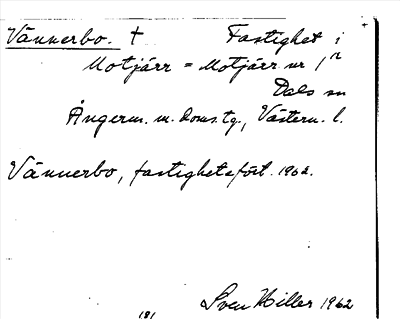 Vännerbo. † Fastighet i
Motjärr = Motjärr nr 1²
Dals sn
Ångerm. m. doms.tg., Västern. l.
Vännerbo, fastighetsfört. 1962.
Sven Hiller 1962
181